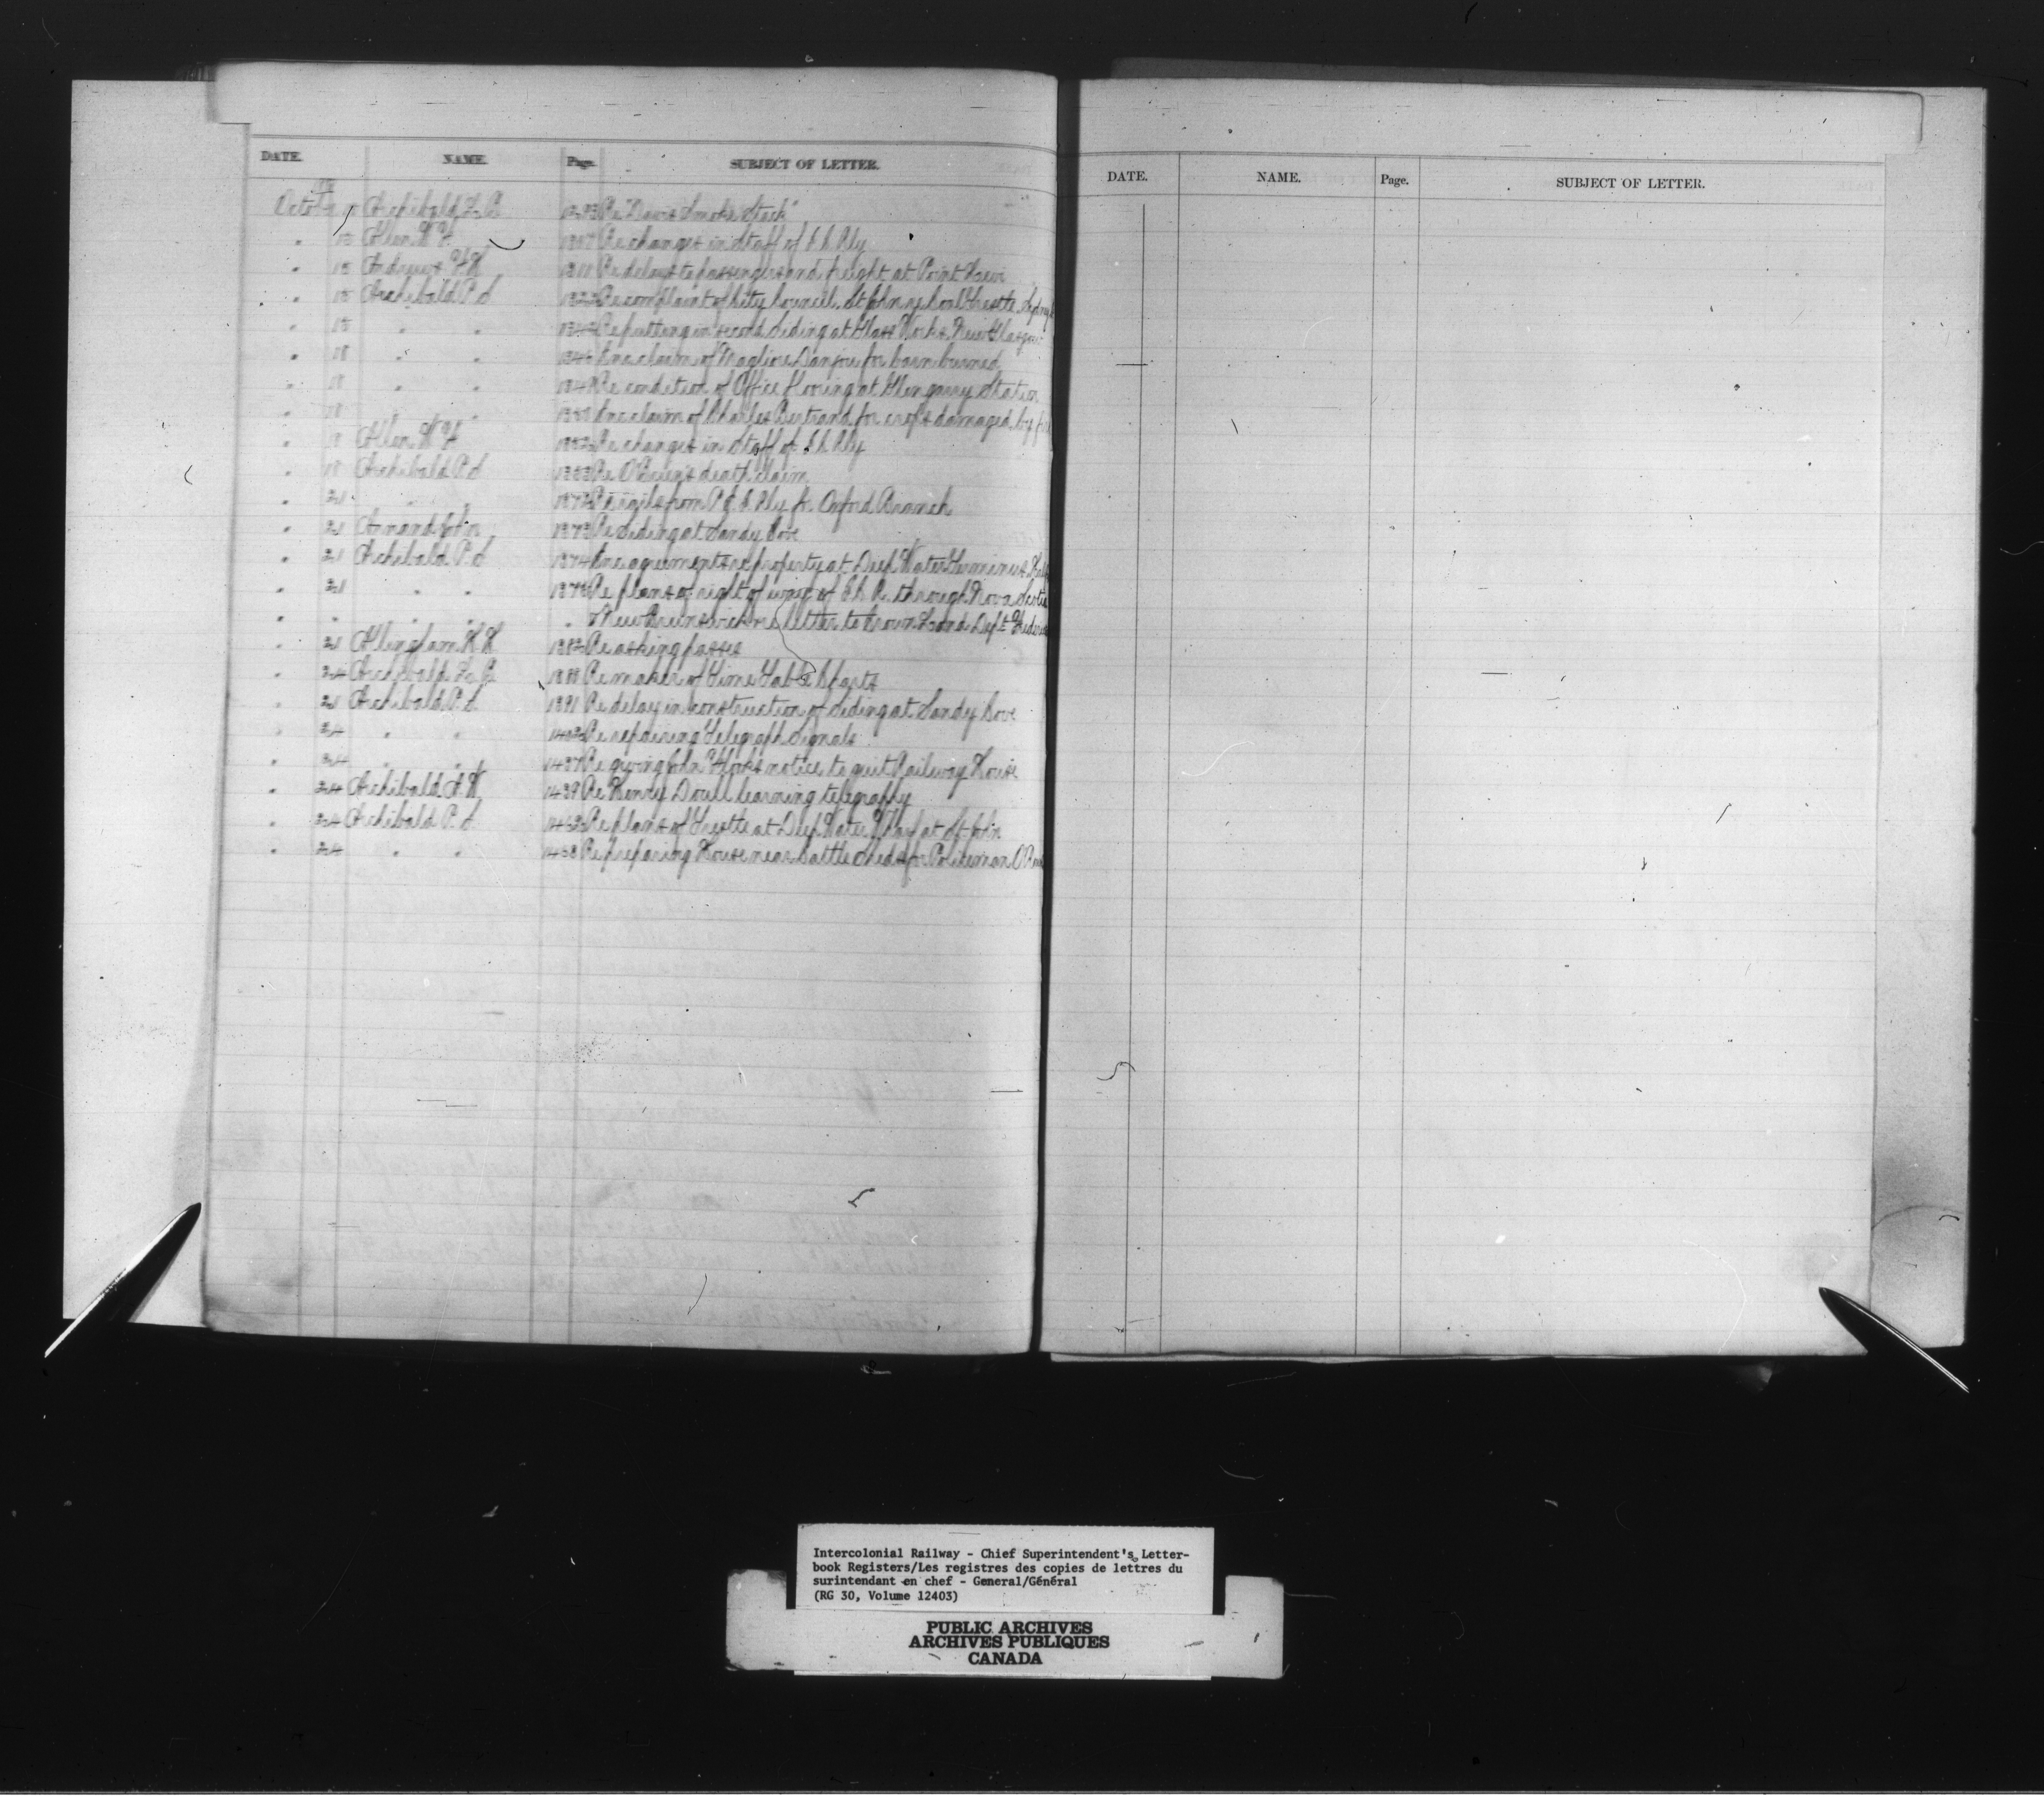 DATE. NAME. Page. SUBJECT OF LETTER.
October Archibald 1293 Re "Davis Smoke Stack"
" 15 Allen 1307 Re changes in Staff of I.C. Rly
" 15 Andrews 1311 Re delays to passengers and freight at Point Levi
" 15 Archibald P.S. Re complaint of City Council St John
" " " Re putting in second Siding at Glass Works New Glasgow
" 18 " " claim of Danjou for barn burned
" 18 " " Re condition of Office flooring at Glengarry Station
" 18 " " claim of Charles Bertrand for crops damaged by
" 18 Allen Re changes in Staff of I.C. Rly
" 18 Archibald P.S. 1353 Re O'Brien's death claim
" 21 " " 1372 Re rails from P.E.I. Rly for Oxford Branch
" 21 Annand John 1373 Re Siding at Sandy Cove
" 21 Archibald P.S. 1374 agreements re property at Deep Water Terminus
" 21 " " Re plans of right of way of I.C.R. through Nova Scotia
" " " " " & New Brunswick re letter to Crown Land Dept
" 21 Allingham 1382 Re asking passes
" 24 Archibald Re maker of Time Table Charts
" 21 Archibald P.S. 1391 Re delay in construction of Siding at Sandy Cove
" 24 " " Re repairing Telegraph Signals
" 24 " " 1437 Re giving John notice to quit Railway House
" 24 Archibald 1439 Re Henry Doull learning telegraphy
" 24 Archibald P.S. Re plans of Trestle at Deep Water Wharf at St John
" 24 " " 1458 Re preparing House near Cattle Sheds for Policeman
DATE. NAME. Page. SUBJECT OF LETTER.
Intercolonial Railway - Chief Superintendent's Letter-
book Registers/Les registres des copies de lettres du
surintendant en chef - General/Général
(RG 30, Volume 12403)
PUBLIC ARCHIVES
ARCHIVES PUBLIQUES
CANADA